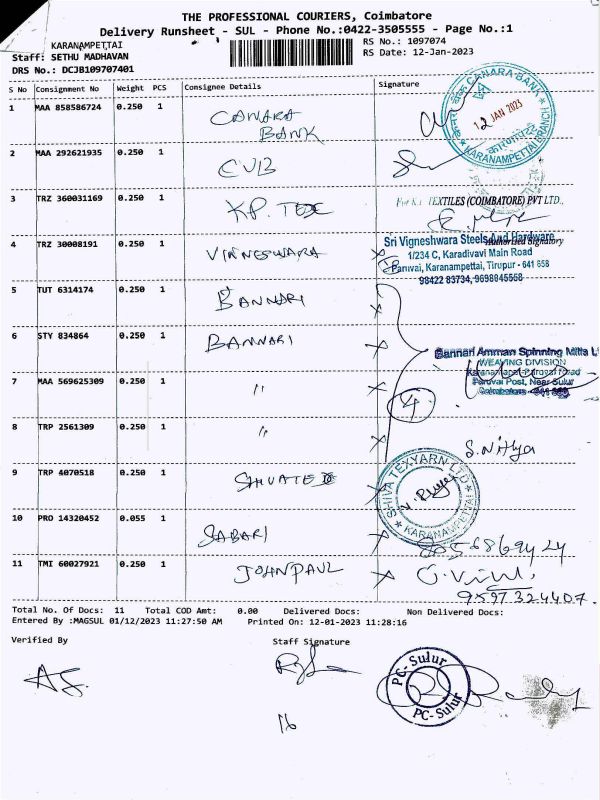 THE PROFESSIONAL COURIERS, Coimbatore
Delivery Runsheet - SUL - Phone No.:0422-3505555 - Page No.:1
KARANAMPETTAI
RS No.: 1097074
Staff: SETHU MADHAVAN
RS Date: 12-Jan-2023
DRS No.: DCJB109707401
S No Consignment No Weight PCS Consignee Details Signature
1 MAA 858586724 0.250 1 CANARA BANK
CANARA BANK
12 JAN 2023
KARANAMPETTAI BRANCH
2 MAA 292621935 0.250 1 CUB
3 TRZ 360031169 0.250 1 KP. TEX
TEXTILES (COIMBATORE) PVT LTD.,
Authorised Signatory
4 TRZ 30008191 0.250 1 VIGNESWARA
Sri Vigneshwara Steels And Hardware
1/234 C, Karadivavi Main Road
Paruvai, Karanampettai, Tirupur - 641 658
98422 83734, 9698845558
5 TUT 6314174 0.250 1 BANNARI
6 STY 834864 0.250 1 BANNARI
Bannari Amman Spinning Mills L
WEAVING DIVISION
Paruvai Post, Near Sulur
7 MAA 569625309 0.250 1 "
4
8 TRP 2561309 0.250 1 "
S. Nithya
9 TRP 4070518 0.250 1
SHIVA TEXYARN LTD
KARANAMPETTAI
10 PRO 14320452 0.055 1 SABARI
11 TMI 60027921 0.250 1 JOHN PAUL
9597324407.
Total No. Of Docs: 11 Total COD Amt: 0.00 Delivered Docs: Non Delivered Docs:
Entered By :MAGSUL 01/12/2023 11:27:50 AM Printed On: 12-01-2023 11:28:16
Verified By Staff Signature
PC-Sulur
PC-Sulur
16